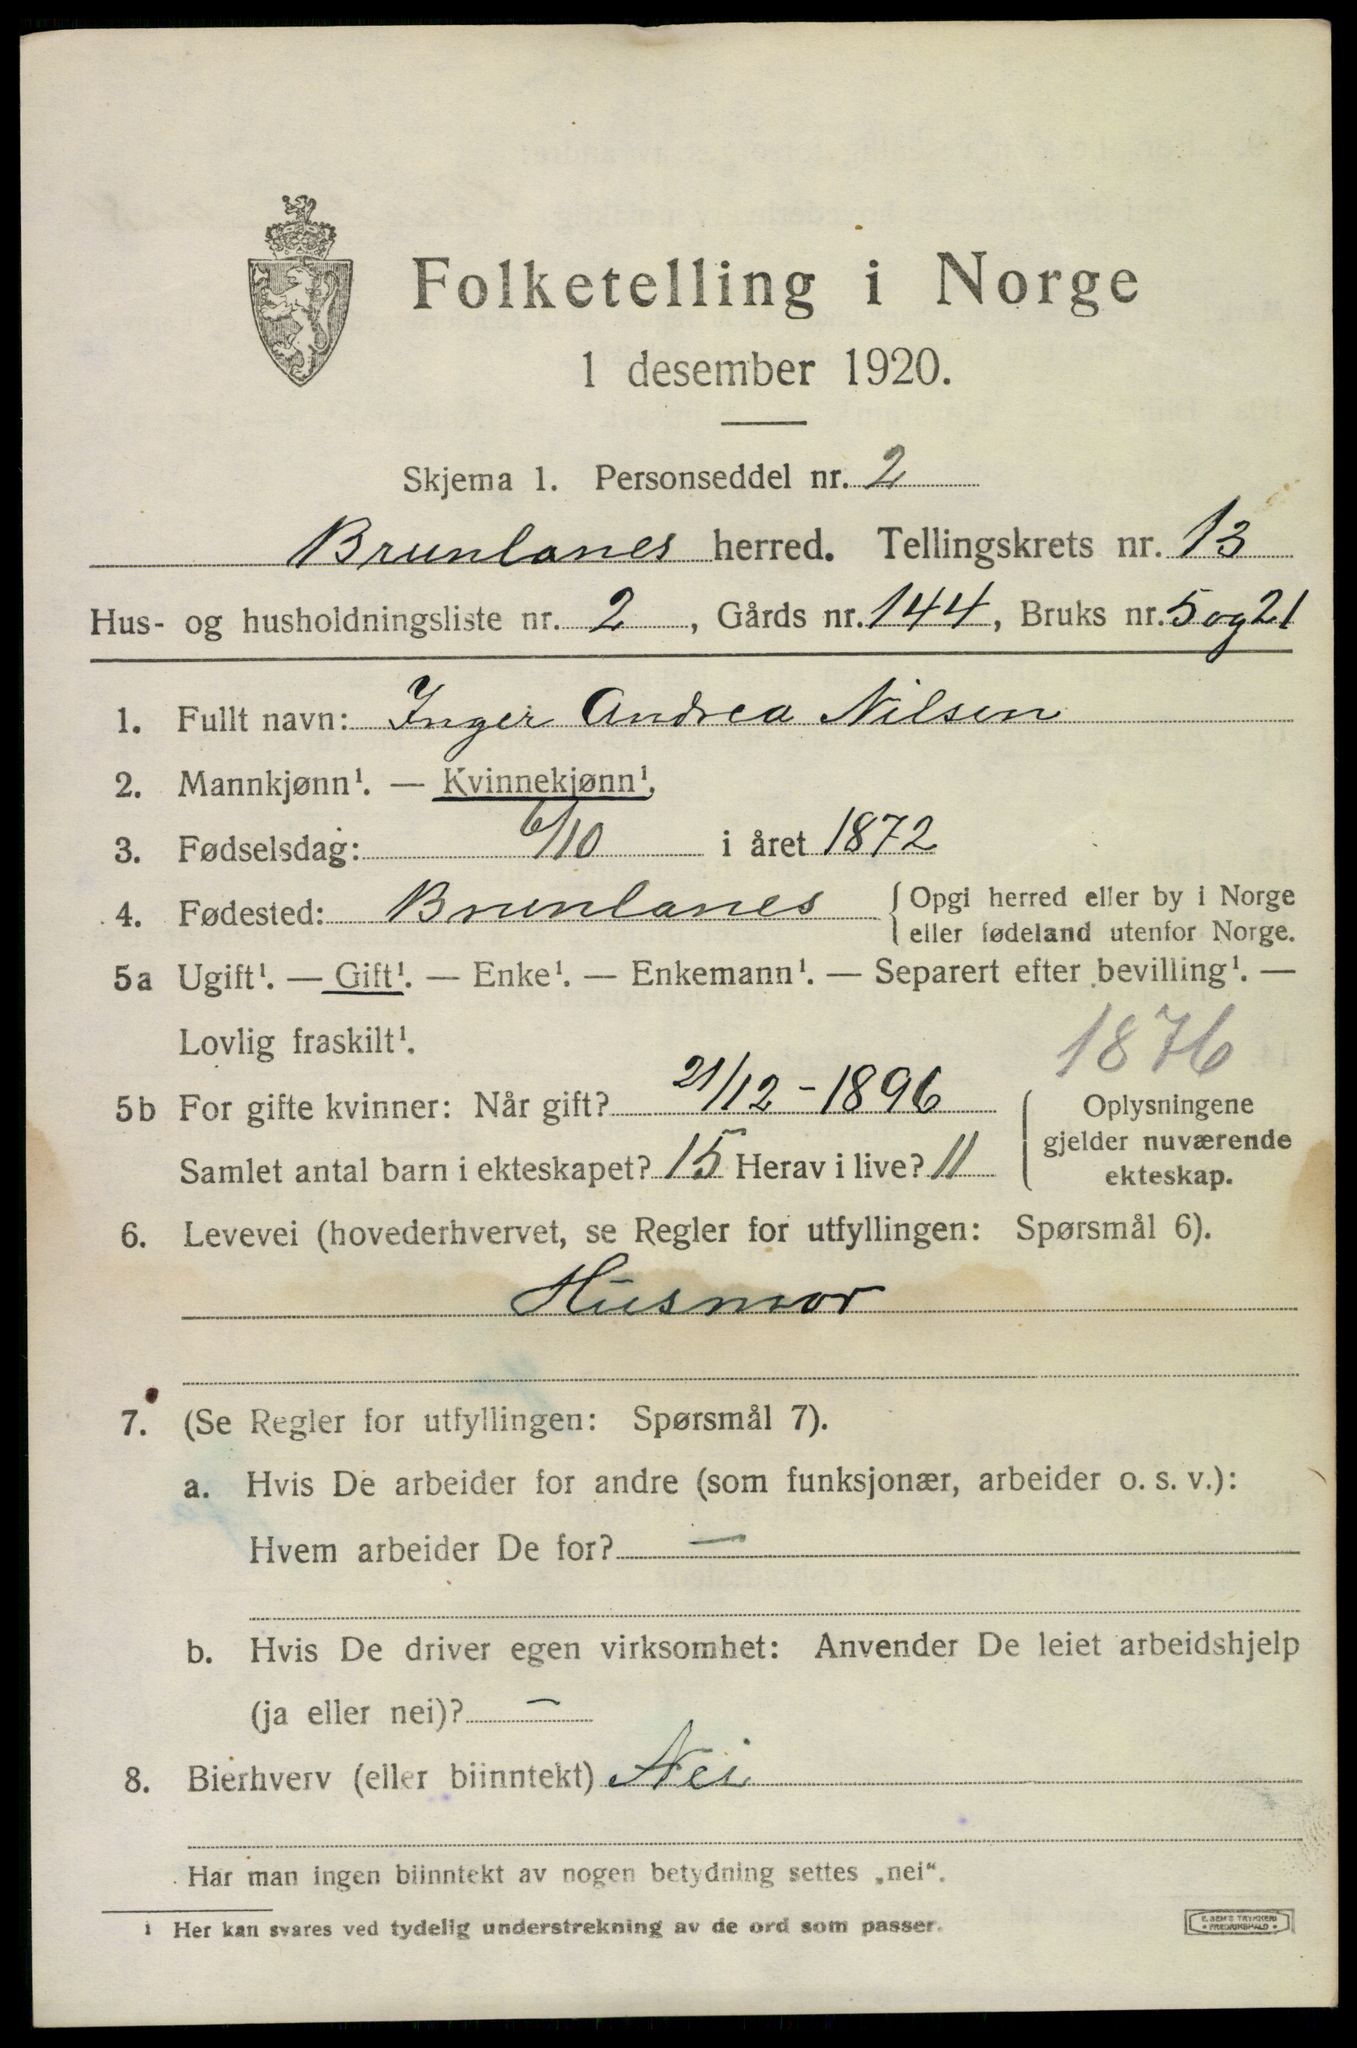 Folketelling i Norge
1 desember 1920.
Skjema 1. Personseddel nr. 2
Brunlanes herred. Tellingskrets nr. 13
Hus- og husholdningsliste nr. 2, Gårds nr. 144, Bruks nr. 5 og 21
1. Fullt navn: Inger Andrea Nilsen
2. Mannkjønn¹. — Kvinnekjønn¹.
3. Fødselsdag: 6/10 i året 1872
4. Fødested: Brunlanes { Opgi herred eller by i Norge
eller fødeland utenfor Norge.
5a Ugift¹. — Gift¹. — Enke¹. — Enkemann¹. — Separert efter bevilling¹. —
Lovlig fraskilt¹.
1876
5b For gifte kvinner: Når gift? 21/12 - 1896
Samlet antal barn i ekteskapet? 15 Herav i live? 11
Oplysningene
gjelder nuværende
ekteskap.
6. Levevei (hovederhvervet, se Regler for utfyllingen: Spørsmål 6).
Husmor
7. (Se Regler for utfyllingen: Spørsmål 7).
a. Hvis De arbeider for andre (som funksjonær, arbeider o. s. v.):
Hvem arbeider De for? —
b. Hvis De driver egen virksomhet: Anvender De leiet arbeidshjelp
(ja eller nei)? —
8. Bierhverv (eller biinntekt) Nei
Har man ingen biinntekt av nogen betydning settes „nei“.
¹ Her kan svares ved tydelig understrekning av de ord som passer.
E. SEM'S TRYKKERI
FREDRIKSHALD